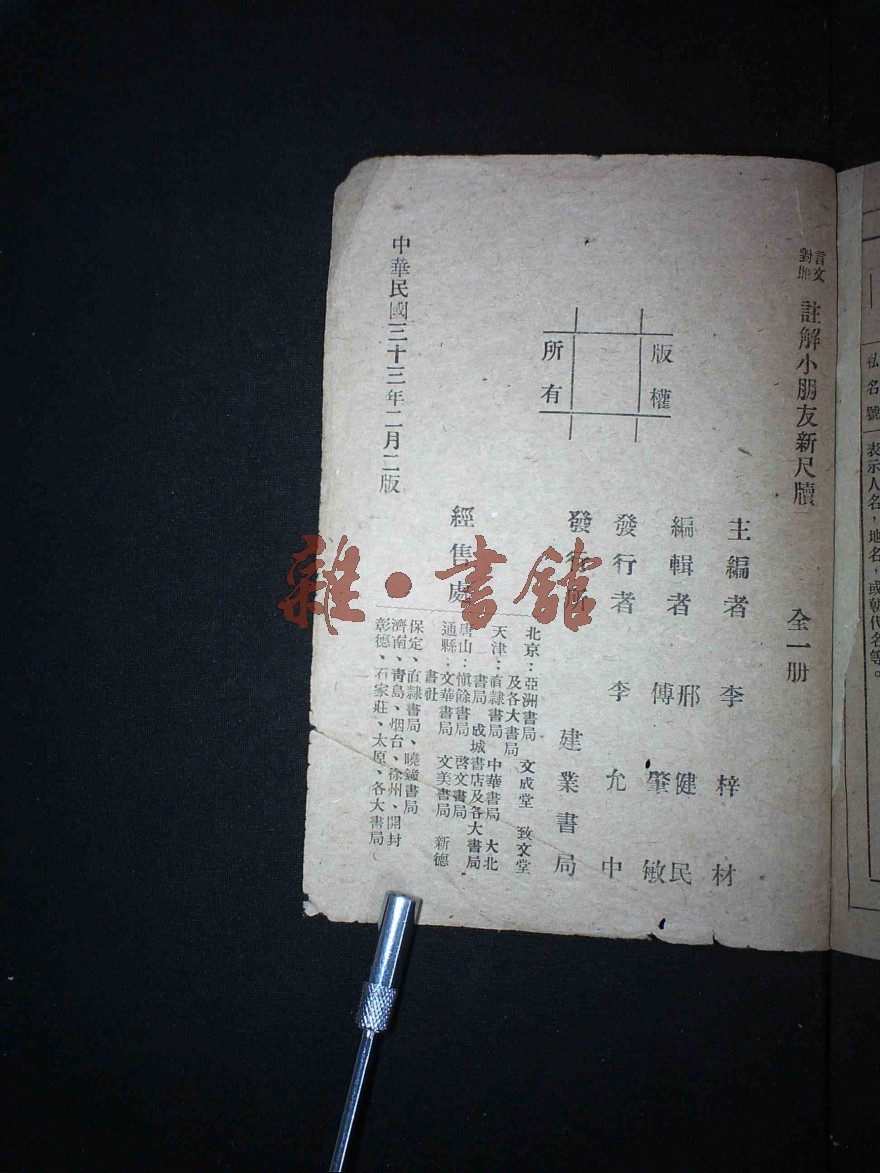 私名號 表示人名，地名，或朝代名等。
言文對照 註解小朋友新尺牘 全一册
主編者 李梓材
編輯者 邢健民
傅肇敏
發行者 李允中
發行所 建業書局
版權
所有
經售處
北京：亞洲書局 文成堂 致文堂
及各大書局
天津：直隸書局 中華書局 大北
書局 成城書店及各大書局
唐山：慎餘書局 啓文書局
通縣：文華書局 文美書局 新德
書社
保定、直隸書局、曉鐘書局
濟南、青島、烟台、徐州、開封
彰德、石家莊、太原、各大書局
中華民國三十三年二月二版
雜·書館